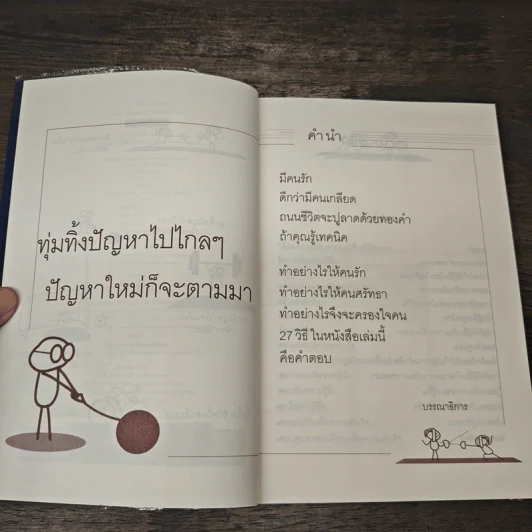 ทุ่มทิ้งปัญหาไปไกลๆ
ปัญหาใหม่ก็จะตามมา
คำนำ
มีคนรัก
ดีกว่ามีคนเกลียด
ถนนชีวิตจะปูลาดด้วยทองคำ
ถ้าคุณรู้เทคนิค
ทำอย่างไรให้คนรัก
ทำอย่างไรให้คนศรัทธา
ทำอย่างไรจึงจะครองใจคน
27 วิธี ในหนังสือเล่มนี้
คือคำตอบ
บรรณาธิการ